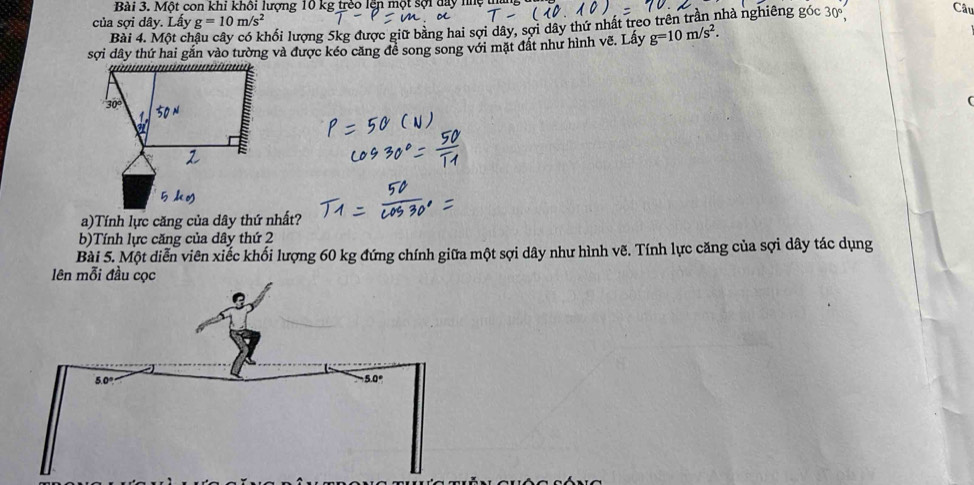 Bài 3. Một con khỉ khối lượng 10 kg trèo lên một sợi dây nhẹ
của sợi dây. Lấy g = 10 m/s²
T - P = m. a T - (10.10) =
Bài 4. Một chậu cây có khối lượng 5kg được giữ bằng hai sợi dây, sợi dây thứ nhất treo trên trần nhà nghiêng góc 30°,
sợi dây thứ hai gắn vào tường và được kéo căng để song song với mặt đất như hình vẽ. Lấy g=10 m/s².
Câu
30°
1
50 N
2
5 kg
P = 50 (N)
cos 30° = 50/T1
T1 = 50/cos 30° =
a)Tính lực căng của dây thứ nhất?
b)Tính lực căng của dây thứ 2
Bài 5. Một diễn viên xiếc khối lượng 60 kg đứng chính giữa một sợi dây như hình vẽ. Tính lực căng của sợi dây tác dụng
lên mỗi đầu cọc
5.0°
5.0°